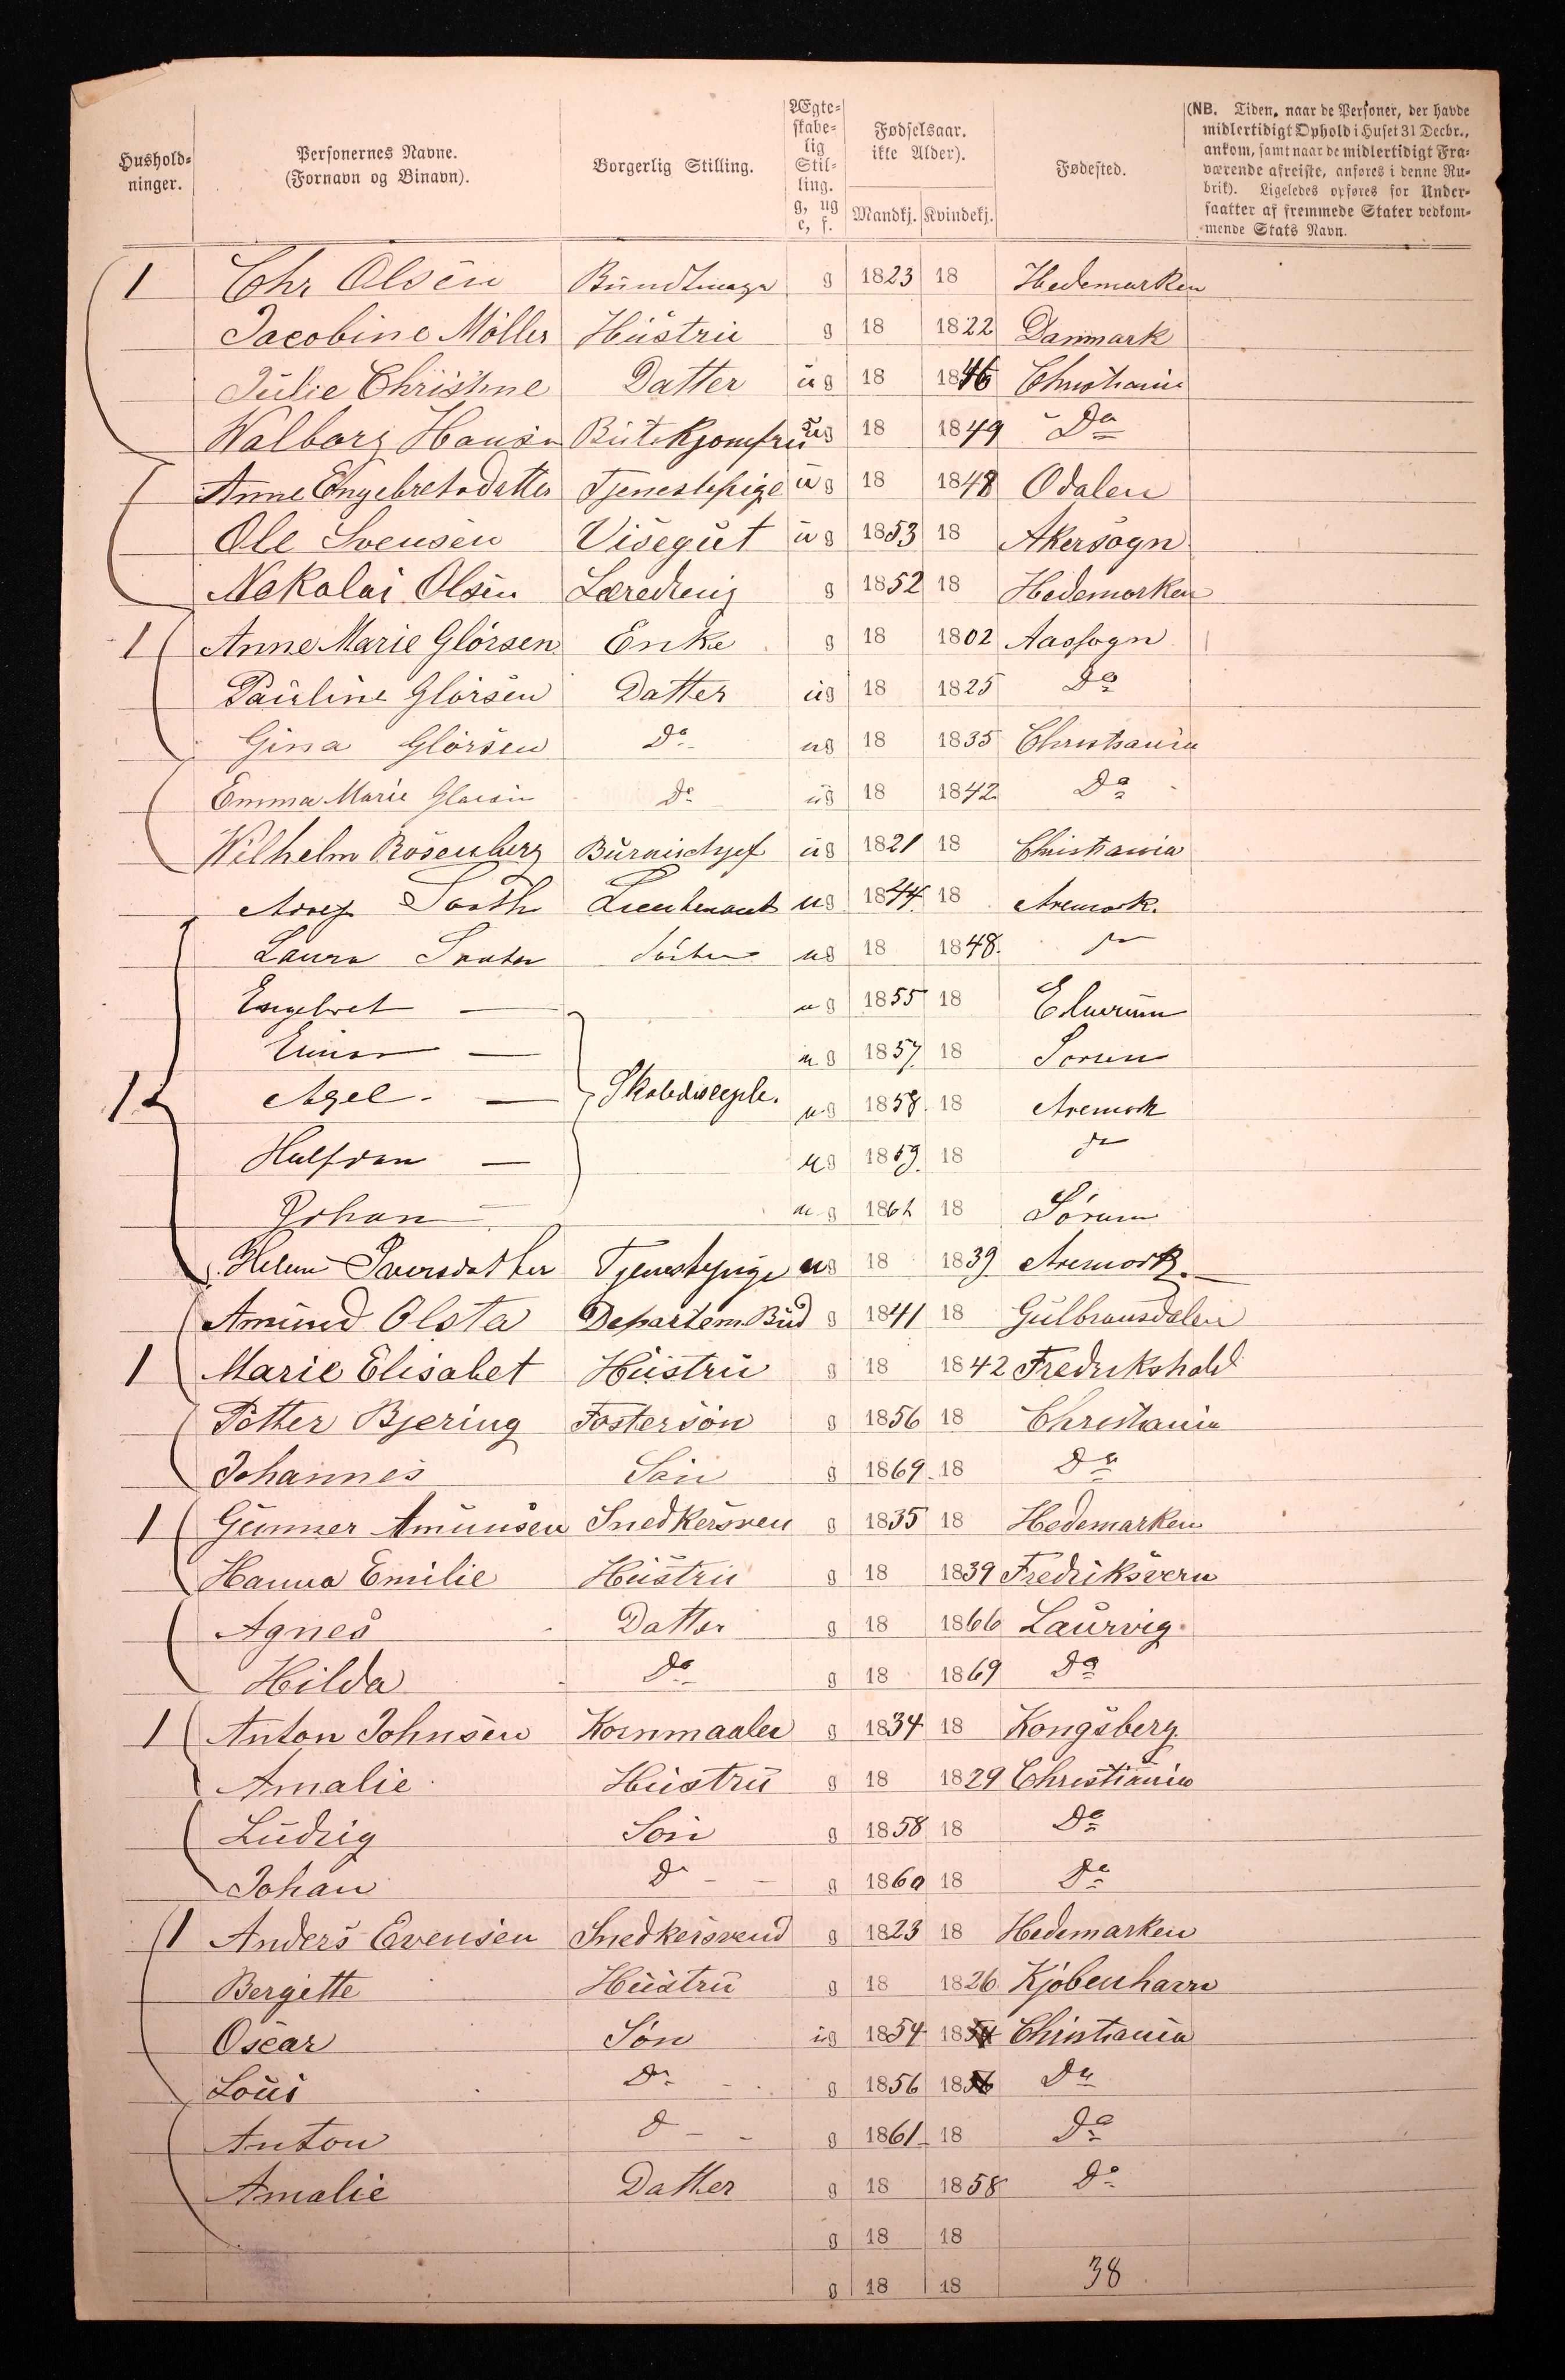 Hushold-
ninger.
Personernes Navne.
(Fornavn og Binavn).
Borgerlig Stilling.
Ægte-
skabe-
lig
Stil-
ling.
g, ug
e, f.
Fødselsaar.
ikke Alder).
Mandkj. Kvindekj.
Fødested.
(NB. Tiden, naar de Personer, der havde
midlertidigt Ophold i Huset 31 Decbr.,
ankom, samt naar de midlertidigt Fra-
værende afreiste, anføres i denne Ru-
brik). Ligeledes opføres for Under-
saatter af fremmede Stater vedkom-
mende Stats Navn.
1 Chr Olsen Bundtmager g 1823 18 Hedemarken
Jacobine Möller Hustru g 18 1822 Danmark
Julie Christine Datter ug 18 1846 Christiania
Walborg Hansen Butikjomfru ug 18 1849 Do
Anne Engebretsdatter Tjenestepige ug 18 1848 Odalen
Ole Svensen Visegut ug 1853 18 Akersogn
Nekolai Olsen Læredreng g 1852 18 Hedemarken
1 Anne Marie Glörsen Enke g 18 1802 Aassogn
Pauline Glörsen Datter ug 18 1825 Do
Gina Glörsen Do ug 18 1835 Christiania
Emma Marie Glørsen Do ug 18 1842 Do
Wilhelm Rosenberg ug 1821 18 Christiania
Lieutenant ug 1844 18 Aremark.
Laura Søster ug 18 1848. do
Engebret — ug 1855 18 Elverum
Einar — ug 1857. 18 Sorum
1 Axel. — Skoledisciple. ug 1858. 18 Aremark
Halfdan — ug 1859. 18 do
Johan — ug 1862 18 Sørum
Helene Iversdatter Tjenestepige ug 18 1839. Aremark.
Amund Olsta Departem. Bud g 1841 18 Gulbransdalen
1 Marie Elisabet Hustru g 18 1842 Fredrikshald
Petter Bjering Fostersön g 1856 18 Christiania
Johannes Sön g 1869 18 Do
1 Gunner Amunsen Snedkersven g 1835 18 Hedemarken
Hanna Emilie Hustru g 18 1839 Fredriksvern
Agnes Datter g 18 1866 Laurvig
Hilda Do g 18 1869 Do
1 Anton Johnsen Kornmaaler g 1834 18 Kongsberg
Amalie Hustru g 18 1829 Christiania
Ludvig Sön g 1858 18 Do
Johan Do g 1860 18 Do
1 Anders Evensen Snedkersvend g 1823 18 Hedemarken
Bergitte Hustru g 18 1826 Kjøbenhavn
Oscar Sön ug 1854 1854 Christiania
Loui Do g 1856 1856 Do
Anton D g 1861 18 Do
Amalie Datter g 18 1858 Do
g 18 18
g 18 18 38